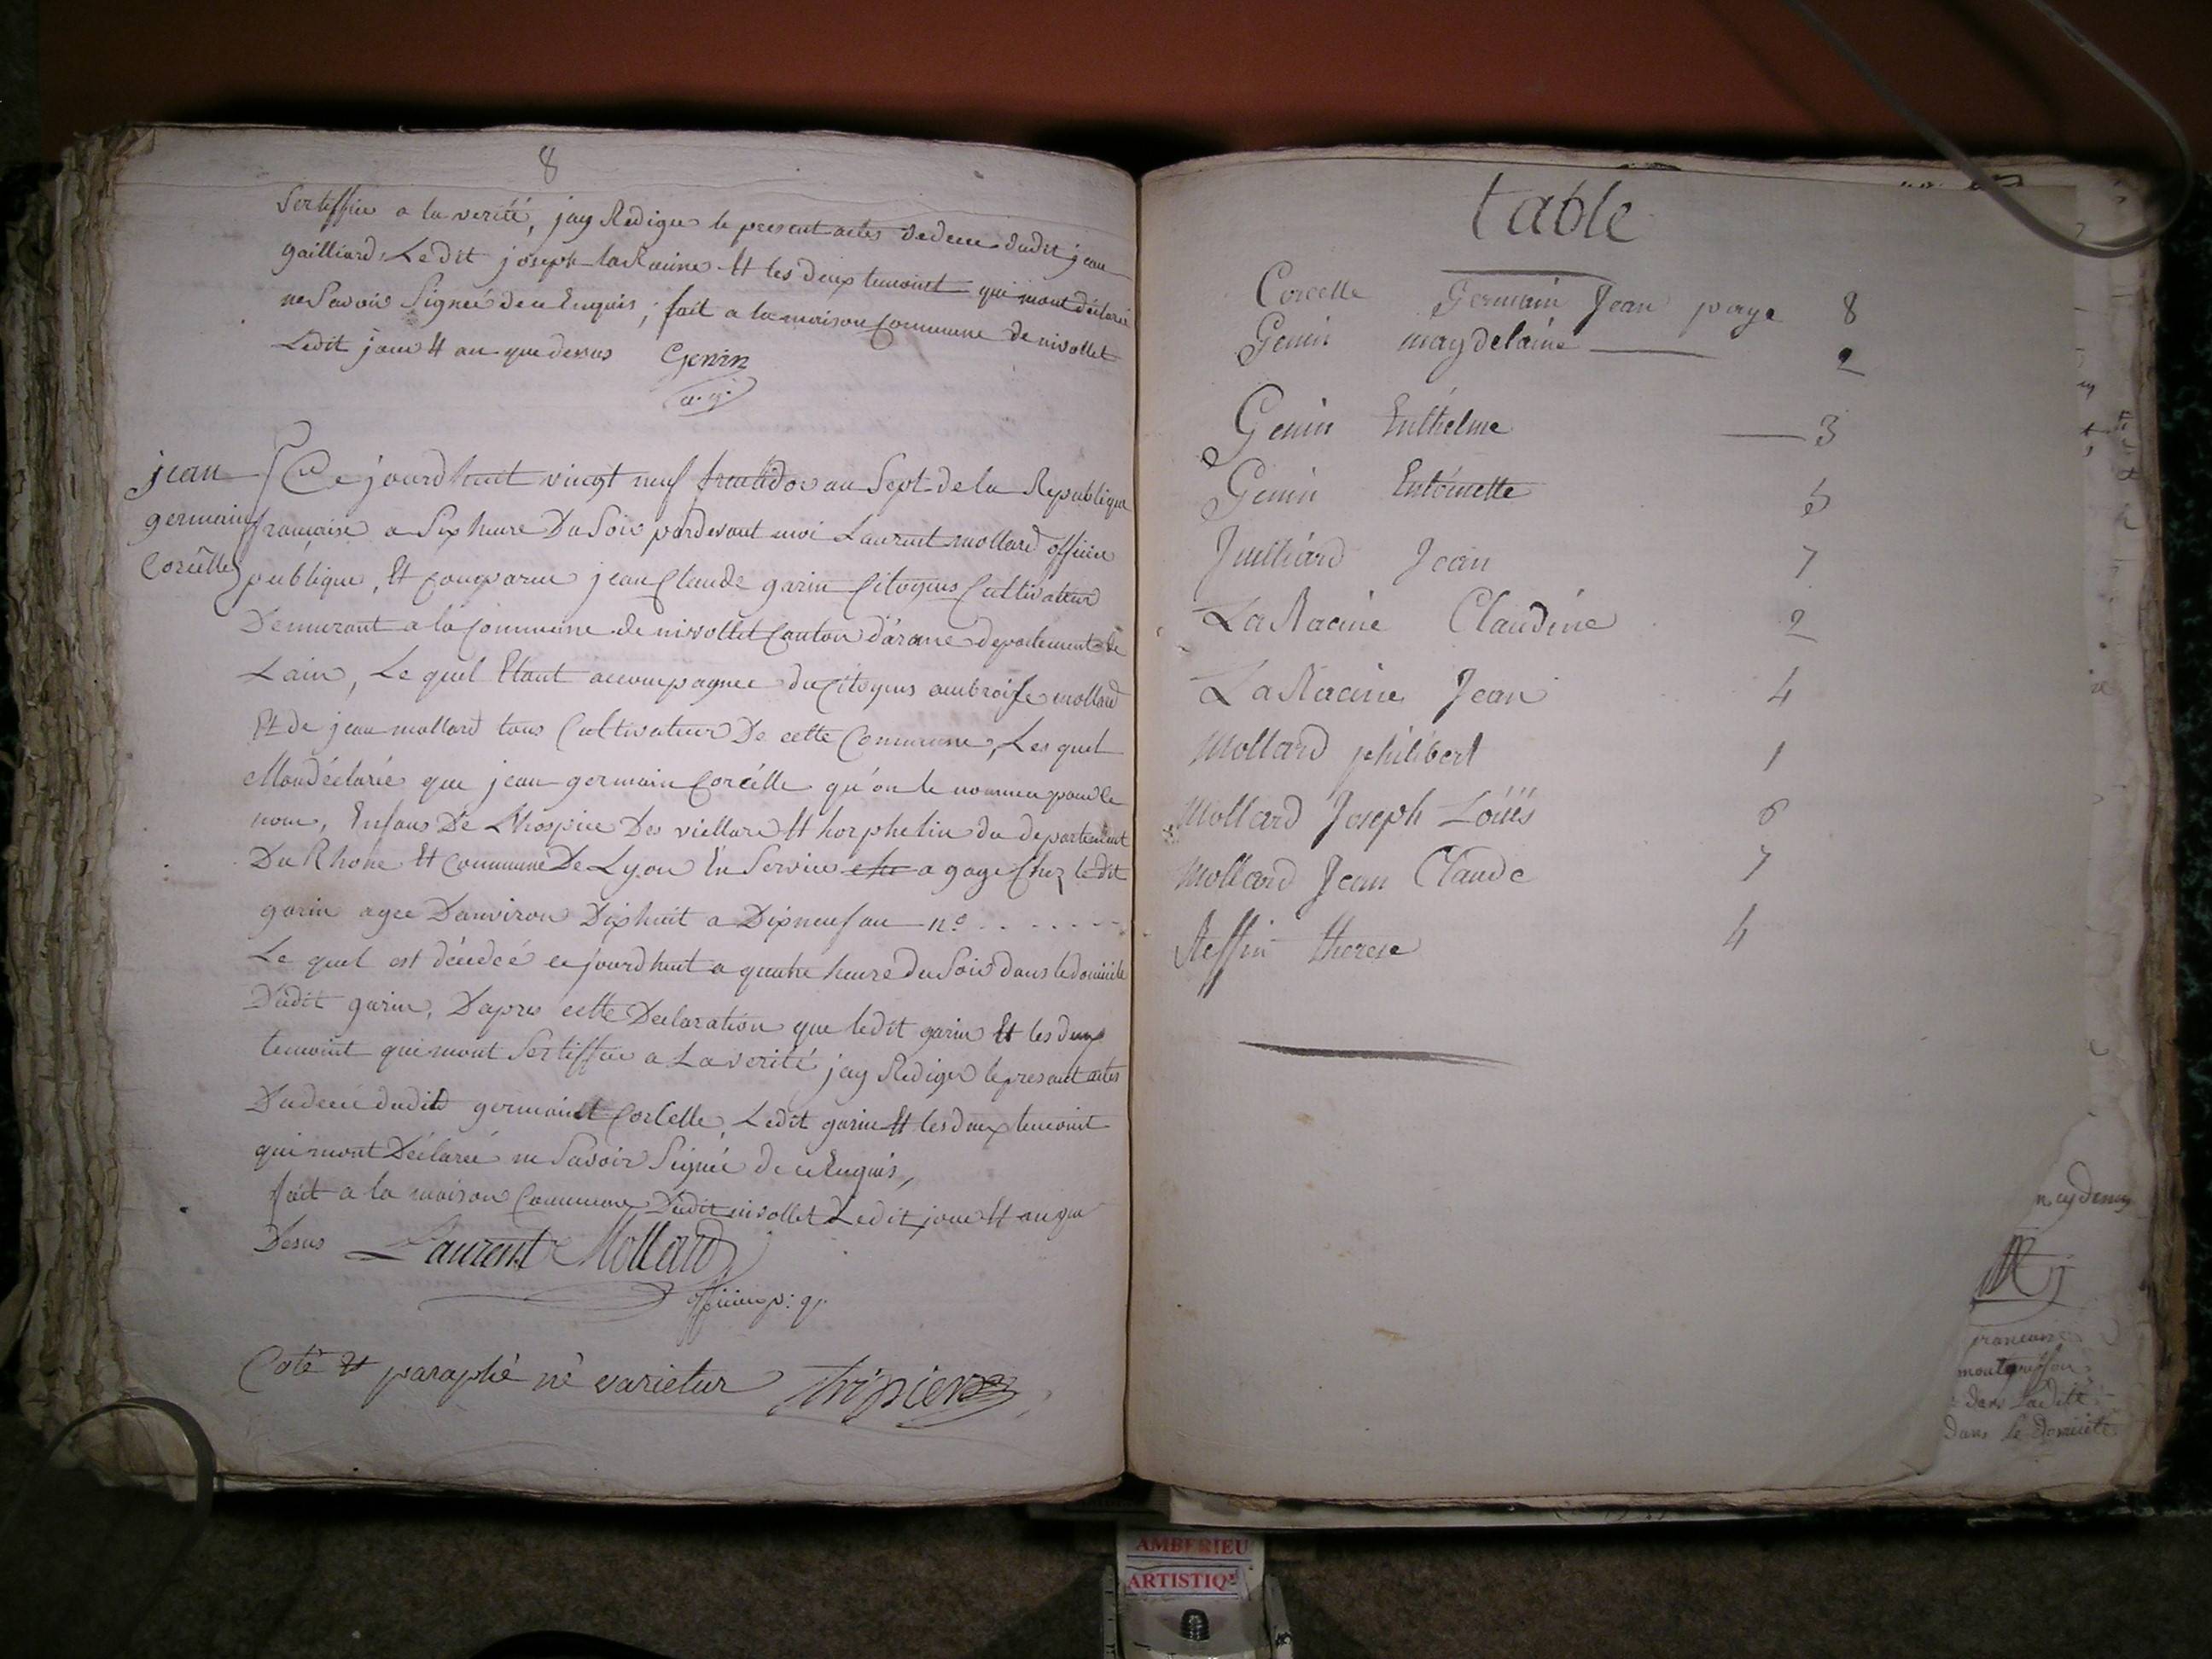 8
Sertiffié a la verité, jay Redigée le present actes dedece dudit jean
gailliard, Ledit joseph laRacine Et les deux temoint qui mont déclaré
ne Savoir Signeé de ce Enquis ; fait a la maison Commune de nivollet
Ledit jour Et an que dessus Genin
a. p.
jean
germain
Corcélle
Ce jourdhuit vingt neuf frutidor an Sept de la Republique
francaise a Six heure Du Soir pardevant moi Laurent mollard officier
publique, Et Comparue jean Claude garin Citoyens Cultivateur
Demeurant a la Commune de nivollet Canton d'arane departement de
Lain, Le quel Etant accompagnee du Citoyens ambroise mollard
Et de jean mollard tous Cultivateur De cette Commune, Les quel
Mon déclarée que jean germain Corcélle qu'on le nommer pour le
nom, Enfans De Lhospice Des viellard Et horphelin du departement
Du Rhone Et Commune De Lyon En Service a gage Chez ledit
garin agee Danviron Dixhuit a Dixneuf an n.o . . . . . .
Le quel est décedeé ce jourdhuit a quatre heure du Soir dans le domicile
Dudit garin, Dapres cette Declaration que ledit garin Et les deux
temoint qui mont Sertiffié a La verité jay Redigée le present actes
Dedecé dudit germain Corcelle, Ledit garin Et les deux temoint
qui mont Déclareé ne Savoir Signée de ce Enquis,
fait a la maison Commune Dudit nivollet Ledit jour Et an que
Desus Laurent Mollard
officier p: q.
Coté et paraphé nè varietur
table
Corcelle Germain Jean page 8
Genin magdelaine 2
Genin Enthelme 3
Genin Entoinette
Juilliard Jean 7
LaRacine Claudine 2
LaRacine Jean 4
Mollard philibert 1
Mollard Joseph Loüis 6
Mollard Jean Claude 7
Reffin therese 4
dans ladite
dans le domicile
AMBERIEU
ARTISTIQ